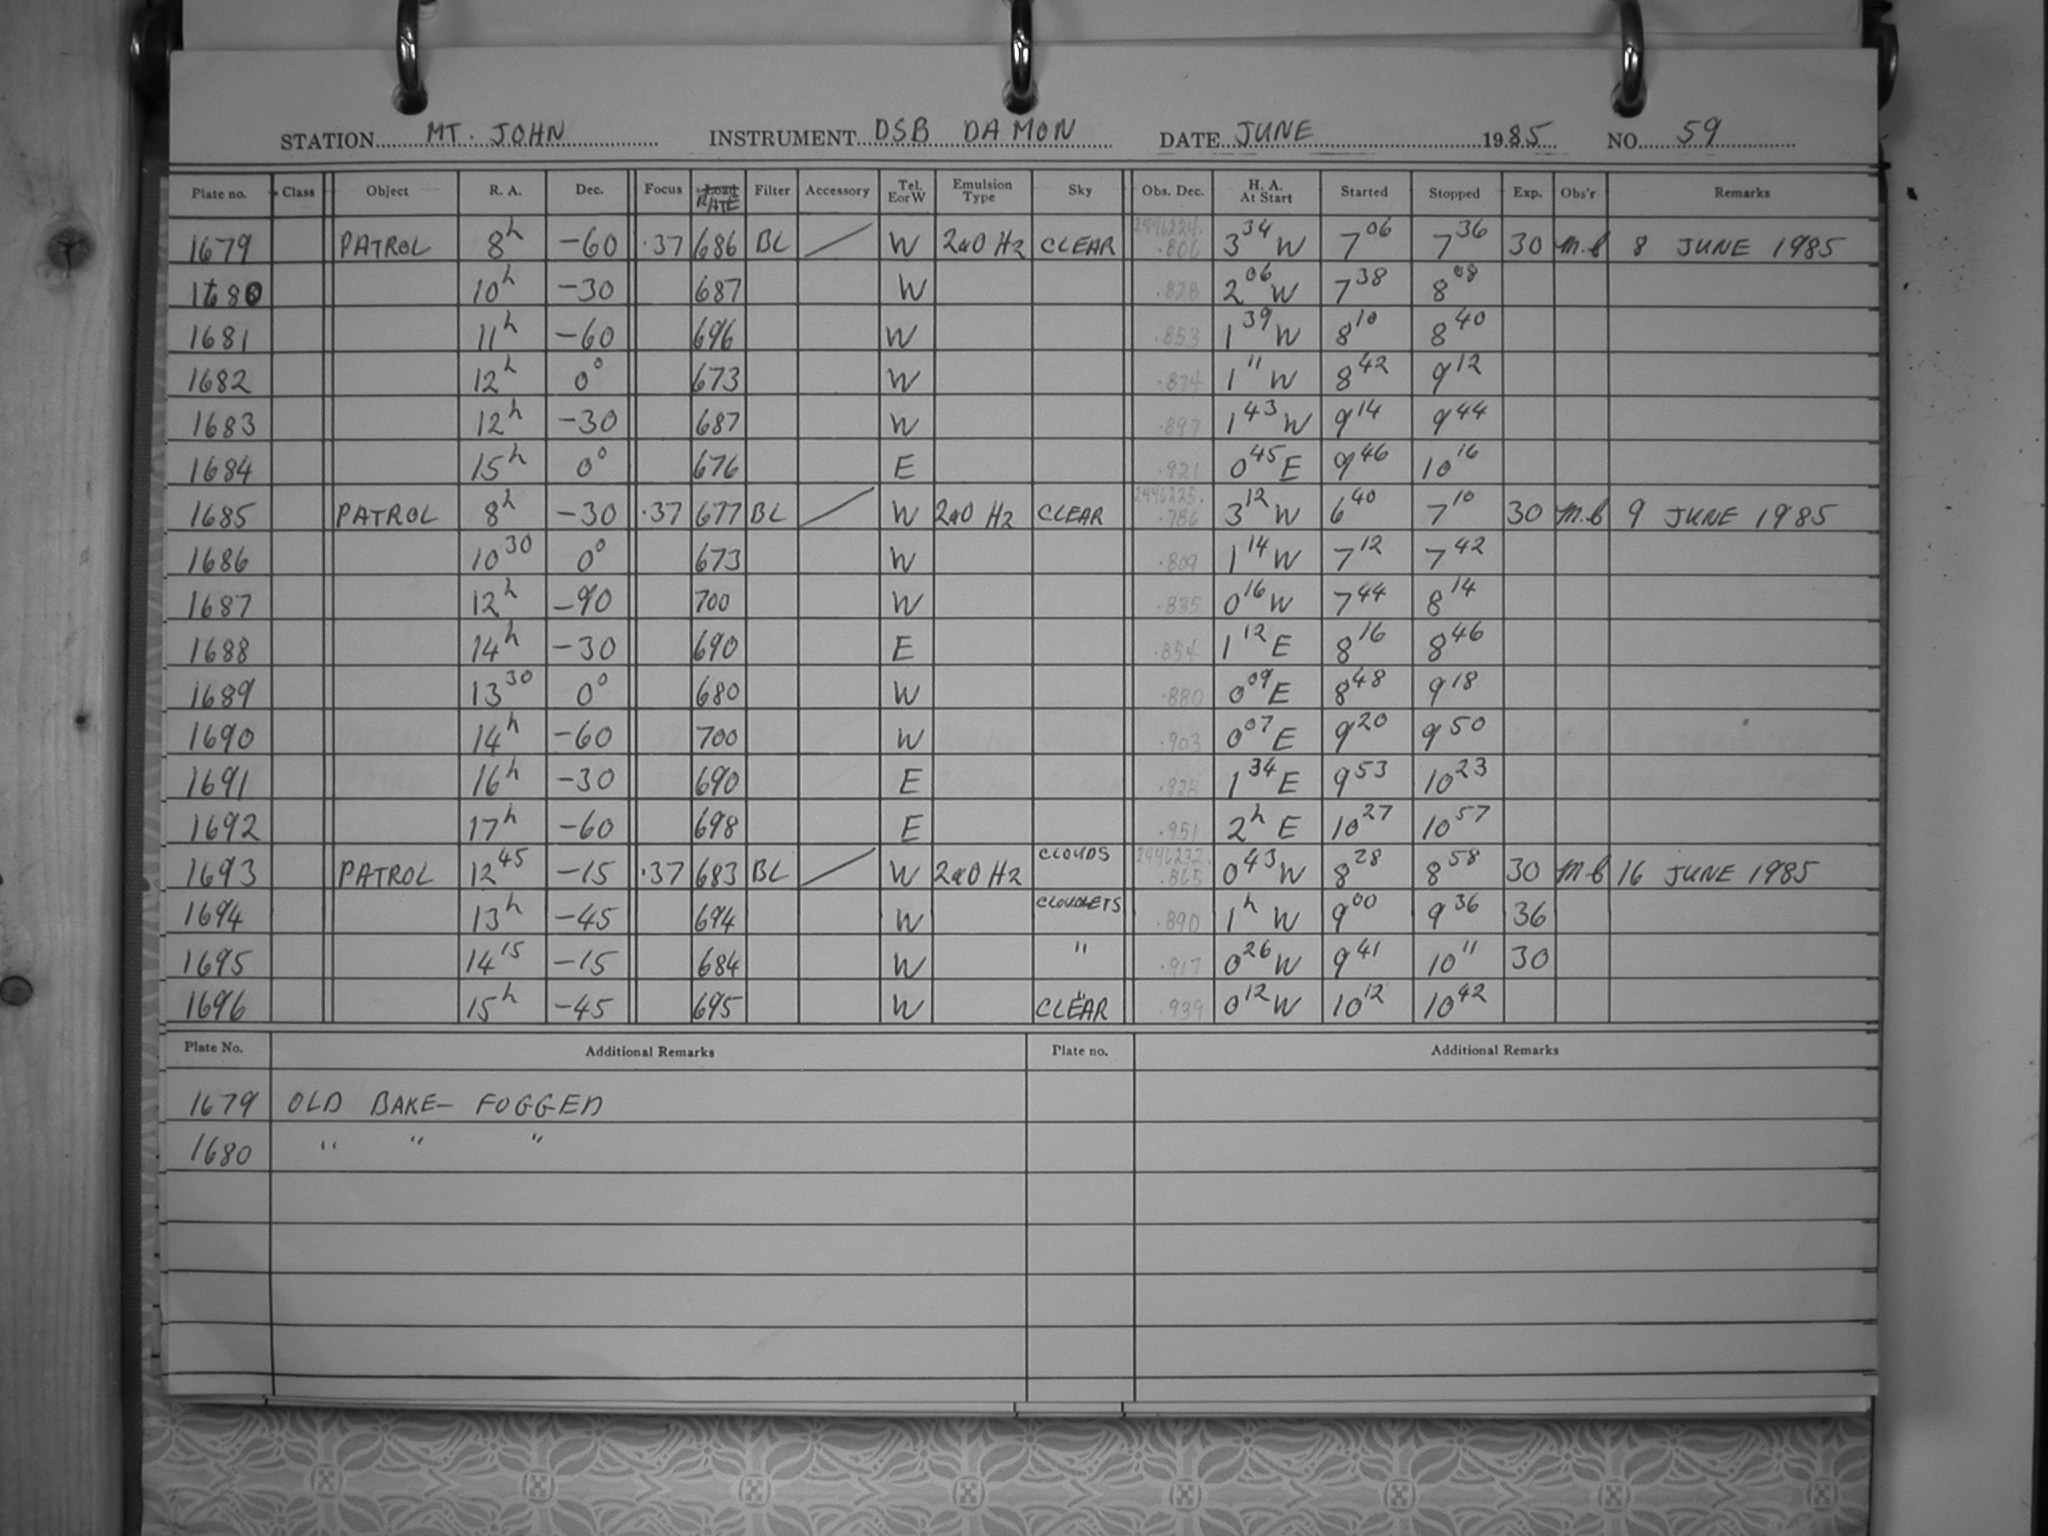 STATION MT. JOHN INSTRUMENT DSB DAMON DATE JUNE 1985 NO. 59
Plate no. Class Object R. A. Dec. Focus RATE Filter Accessory Tel. E or W Emulsion Type Sky Obs. Dec. H. A. At Start Started Stopped Exp. Obs'r Remarks
1679 PATROL 8h -60 .37 686 BL W 2aO H2 CLEAR 2446224. .806 3 34 W 7 06 7 36 30 M.B 8 JUNE 1985
1680 10h -30 687 W .828 2 06 W 7 38 8 08
1681 11h -60 696 W .853 1 39 W 8 10 8 40
1682 12h 0° 673 W .874 1 11 W 8 42 9 12
1683 12h -30 687 W .897 1 43 W 9 14 9 44
1684 15h 0° 676 E .921 0 45 E 9 46 10 16
1685 PATROL 8h -30 .37 677 BL W 2aO H2 CLEAR 2446225. .786 3 12 W 6 40 7 10 30 M.B 9 JUNE 1985
1686 10 30 0° 673 W .809 1 14 W 7 12 7 42
1687 12h -90 700 W .835 0 16 W 7 44 8 14
1688 14h -30 690 E .854 1 12 E 8 16 8 46
1689 13 30 0° 680 W .880 0 09 E 8 48 9 18
1690 14h -60 700 W .903 0 07 E 9 20 9 50
1691 16h -30 690 E .928 1 34 E 9 53 10 23
1692 17h -60 698 E .951 2h E 10 27 10 57
1693 PATROL 12 45 -15 .37 683 BL W 2aO H2 CLOUDS 2446232. .865 0 43 W 8 28 8 58 30 M.B 16 JUNE 1985
1694 13h -45 694 W CLOUDLETS .890 1h W 9 00 9 36 36
1695 14 15 -15 684 W " .917 0 26 W 9 41 10 11 30
1696 15h -45 695 W CLEAR .939 0 12 W 10 12 10 42
Plate No. Additional Remarks Plate no. Additional Remarks
1679 OLD BAKE - FOGGED
1680 " " "